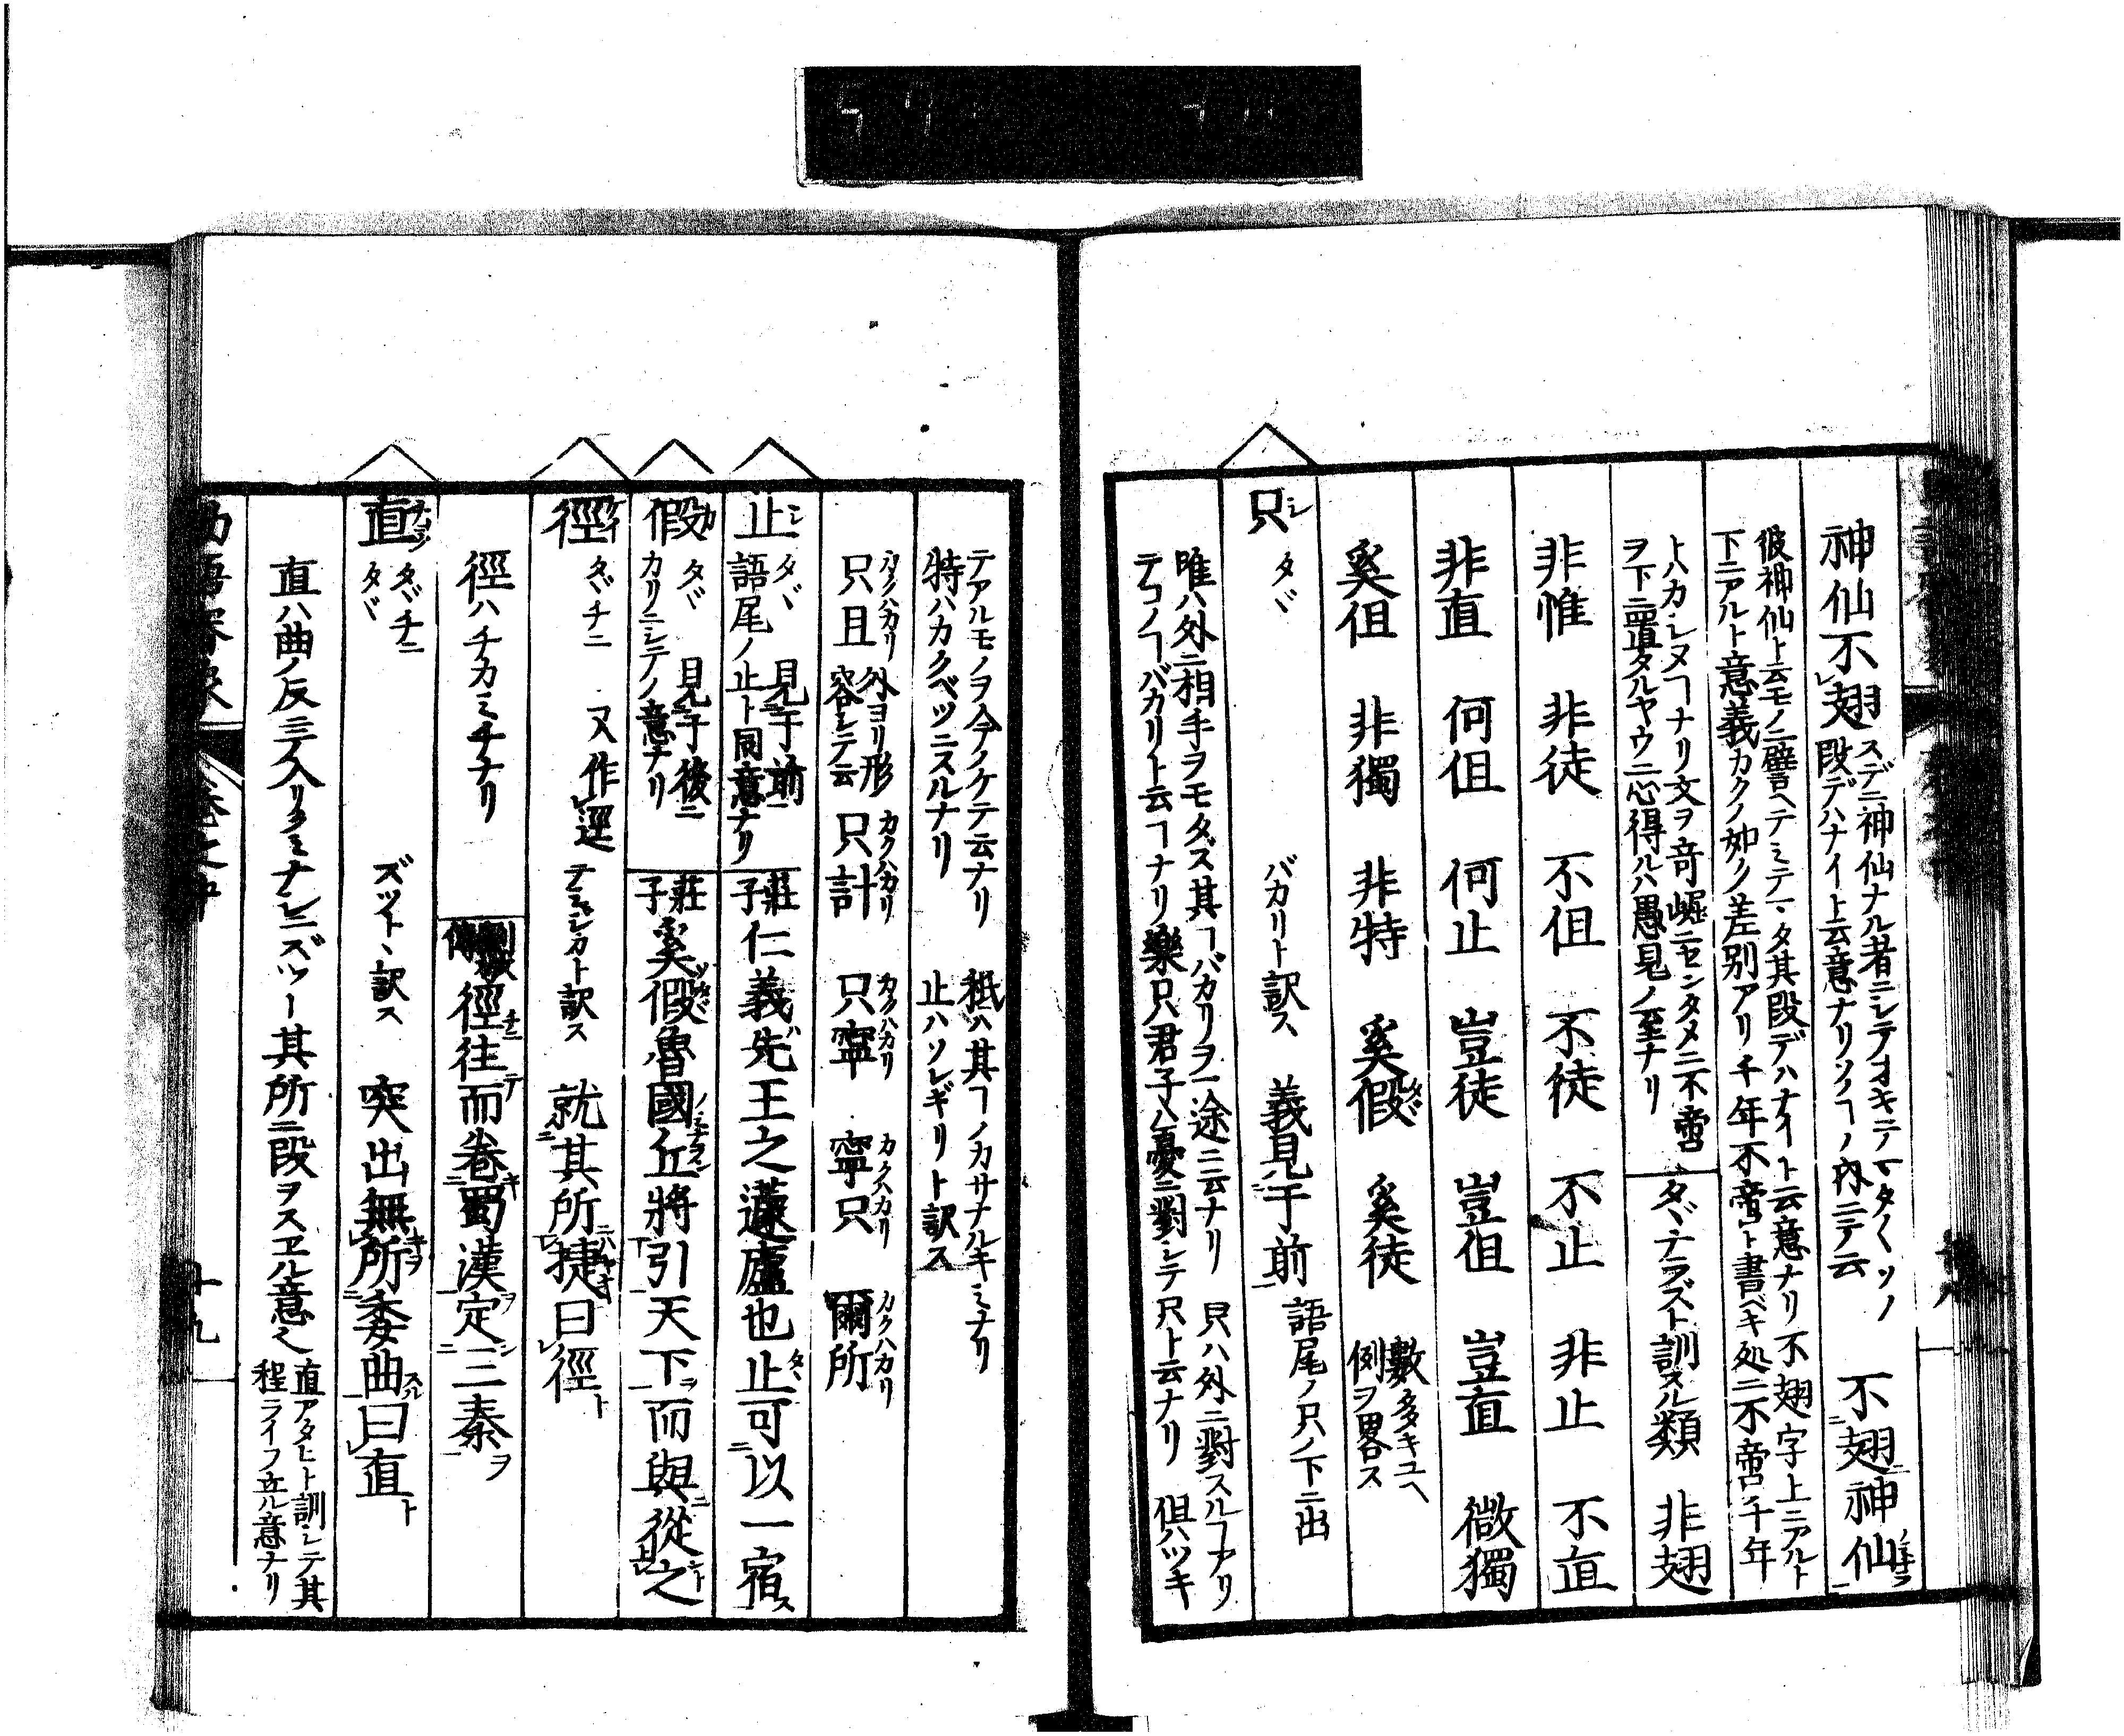 神仙不翅 スデニ神仙ナル者ニシテオキテマタ〱ソノ
段デハナイト云意ナリソノヿノ内ニテ云 不翅神仙
彼神仙ト云モノニ譬ヘテミテマタ其段デハナイト云意ナリ不翅字上ニアルト
下ニアルト意義カクノ如ノ差別アリ千年不啻ト書ベキ処ニ不啻千年
トハカヽレヌヿナリ文ヲ奇崛ニセンタメニ不啻
ヲ下ニ置タルヤウニ心得ルハ愚見ノ至ナリ タヾナラズト訓スル類 非翅
非惟 非徒 不但 不徒 不止 非止 不直
非直 何但 何止 豈徒 豈但 豈直 微獨
奚但 非獨 非特 奚假 奚徒 數多キユヘ
例ヲ畧ス
只 シ タヾ バカリト訳ス 義見于前 語尾ノ只ノ下ニ出
唯ハ外ニ相手ヲモタズ其ヿバカリヲ一途ニ云ナリ 只ハ外ニ對スルヿアリ
テコノヿバカリト云ヿナリ樂只君子ハ憂ニ對シテ只ト云ナリ 但ハツキ
テアルモノヲ今ノケテ云ナリ 祇ハ其ヿノカサナルキミナリ
特ハカクベツニスルナリ 止ハソレギリト訳ス
只且 カクハカリ 外ヨリ形
容シテ云 只計 カクハカリ 只寧 カクハカリ 寧只 カクハカリ 爾所 カクハカリ
止 シ タヾ 見于前
語尾ノ止ト同意ナリ 莊子 仁義先王之蘧廬也止可以一宿
假 カ タヾ 見于後
カリニシテノ意ナリ 莊子 奚假魯國丘將引天下而與從之
徑 ケイ タヾチニ 又作逕 テミシカト訳ス 就其所捷曰徑
徑ハチカミチナリ 徑往而卷蜀漢定三秦
直 タヾチニ
タヾ ズットヽ訳ス 突出無所委曲曰直
直ハ曲ノ反ニテ入リクミナシニズツー其所ニ段ヲスヱル意之 直アタヒト訓シテ其
程ライフ立ル意ナリ
十九